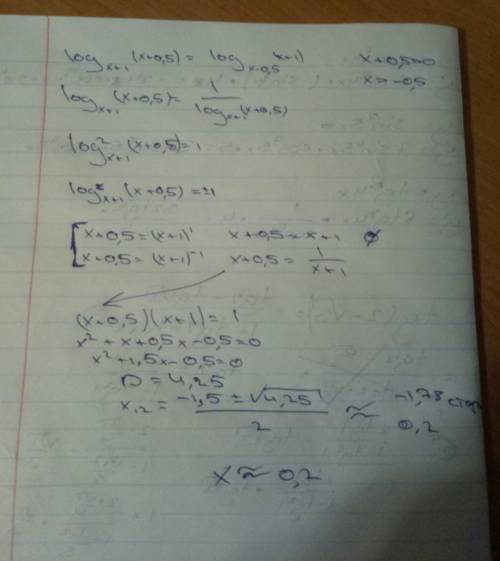 log_{x+1}(x+0,5) = log_{x-0,5}(x+1)    x+0,5=0
x=-0,5
log_{x+1}(x+0,5) = 1/log_{x+1}(x+0,5)
log²_{x+1}(x+0,5)=1
log_{x+1}(x+0,5) = ±1
[ x+0,5=(x+1)¹    x+0,5=x+1    ∅
x+0,5=(x+1)⁻¹    x+0,5= 1/(x+1)
(x+0,5)(x+1)=1
x²+x+0,5x-0,5=0
x²+1,5x-0,5=0
D=4,25
x_{1,2} = (-1,5 ± √4,25)/2 ≈ -1,78
0,2
x ≈ 0,2